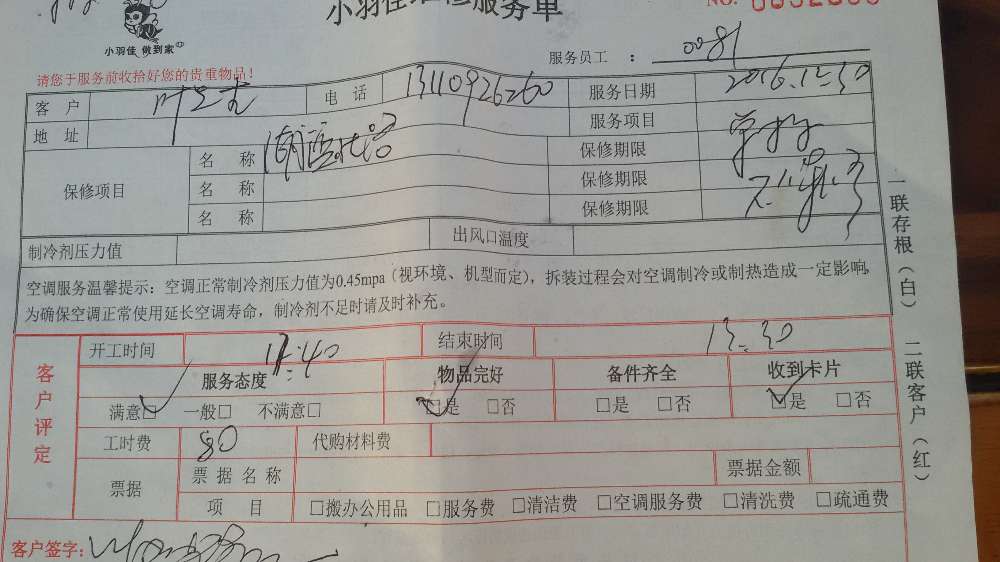 小羽佳维修服务单
小羽佳 做到家
服务员工 ： 0081
请您于服务前收拾好您的贵重物品！
客 户 电 话 13110926260 服务日期 2016.12.30
地 址 服务项目
保修项目 名 称 保修期限
名 称 保修期限
名 称 保修期限
制冷剂压力值 出风口温度
空调服务温馨提示：空调正常制冷剂压力值为0.45mpa（视环境、机型而定），拆装过程会对空调制冷或制热造成一定影响，
为确保空调正常使用延长空调寿命，制冷剂不足时请及时补充。
客户评定
开工时间 11:40 结束时间 13:30
服务态度 物品完好 备件齐全 收到卡片
满意□ 一般□ 不满意□ □是 □否 □是 □否 □是 □否
工时费 80 代购材料费
票据 票据名称 票据金额
项 目 □搬办公用品 □服务费 □清洁费 □空调服务费 □清洗费 □疏通费
客户签字：
一联存根（白） 二联客户（红）